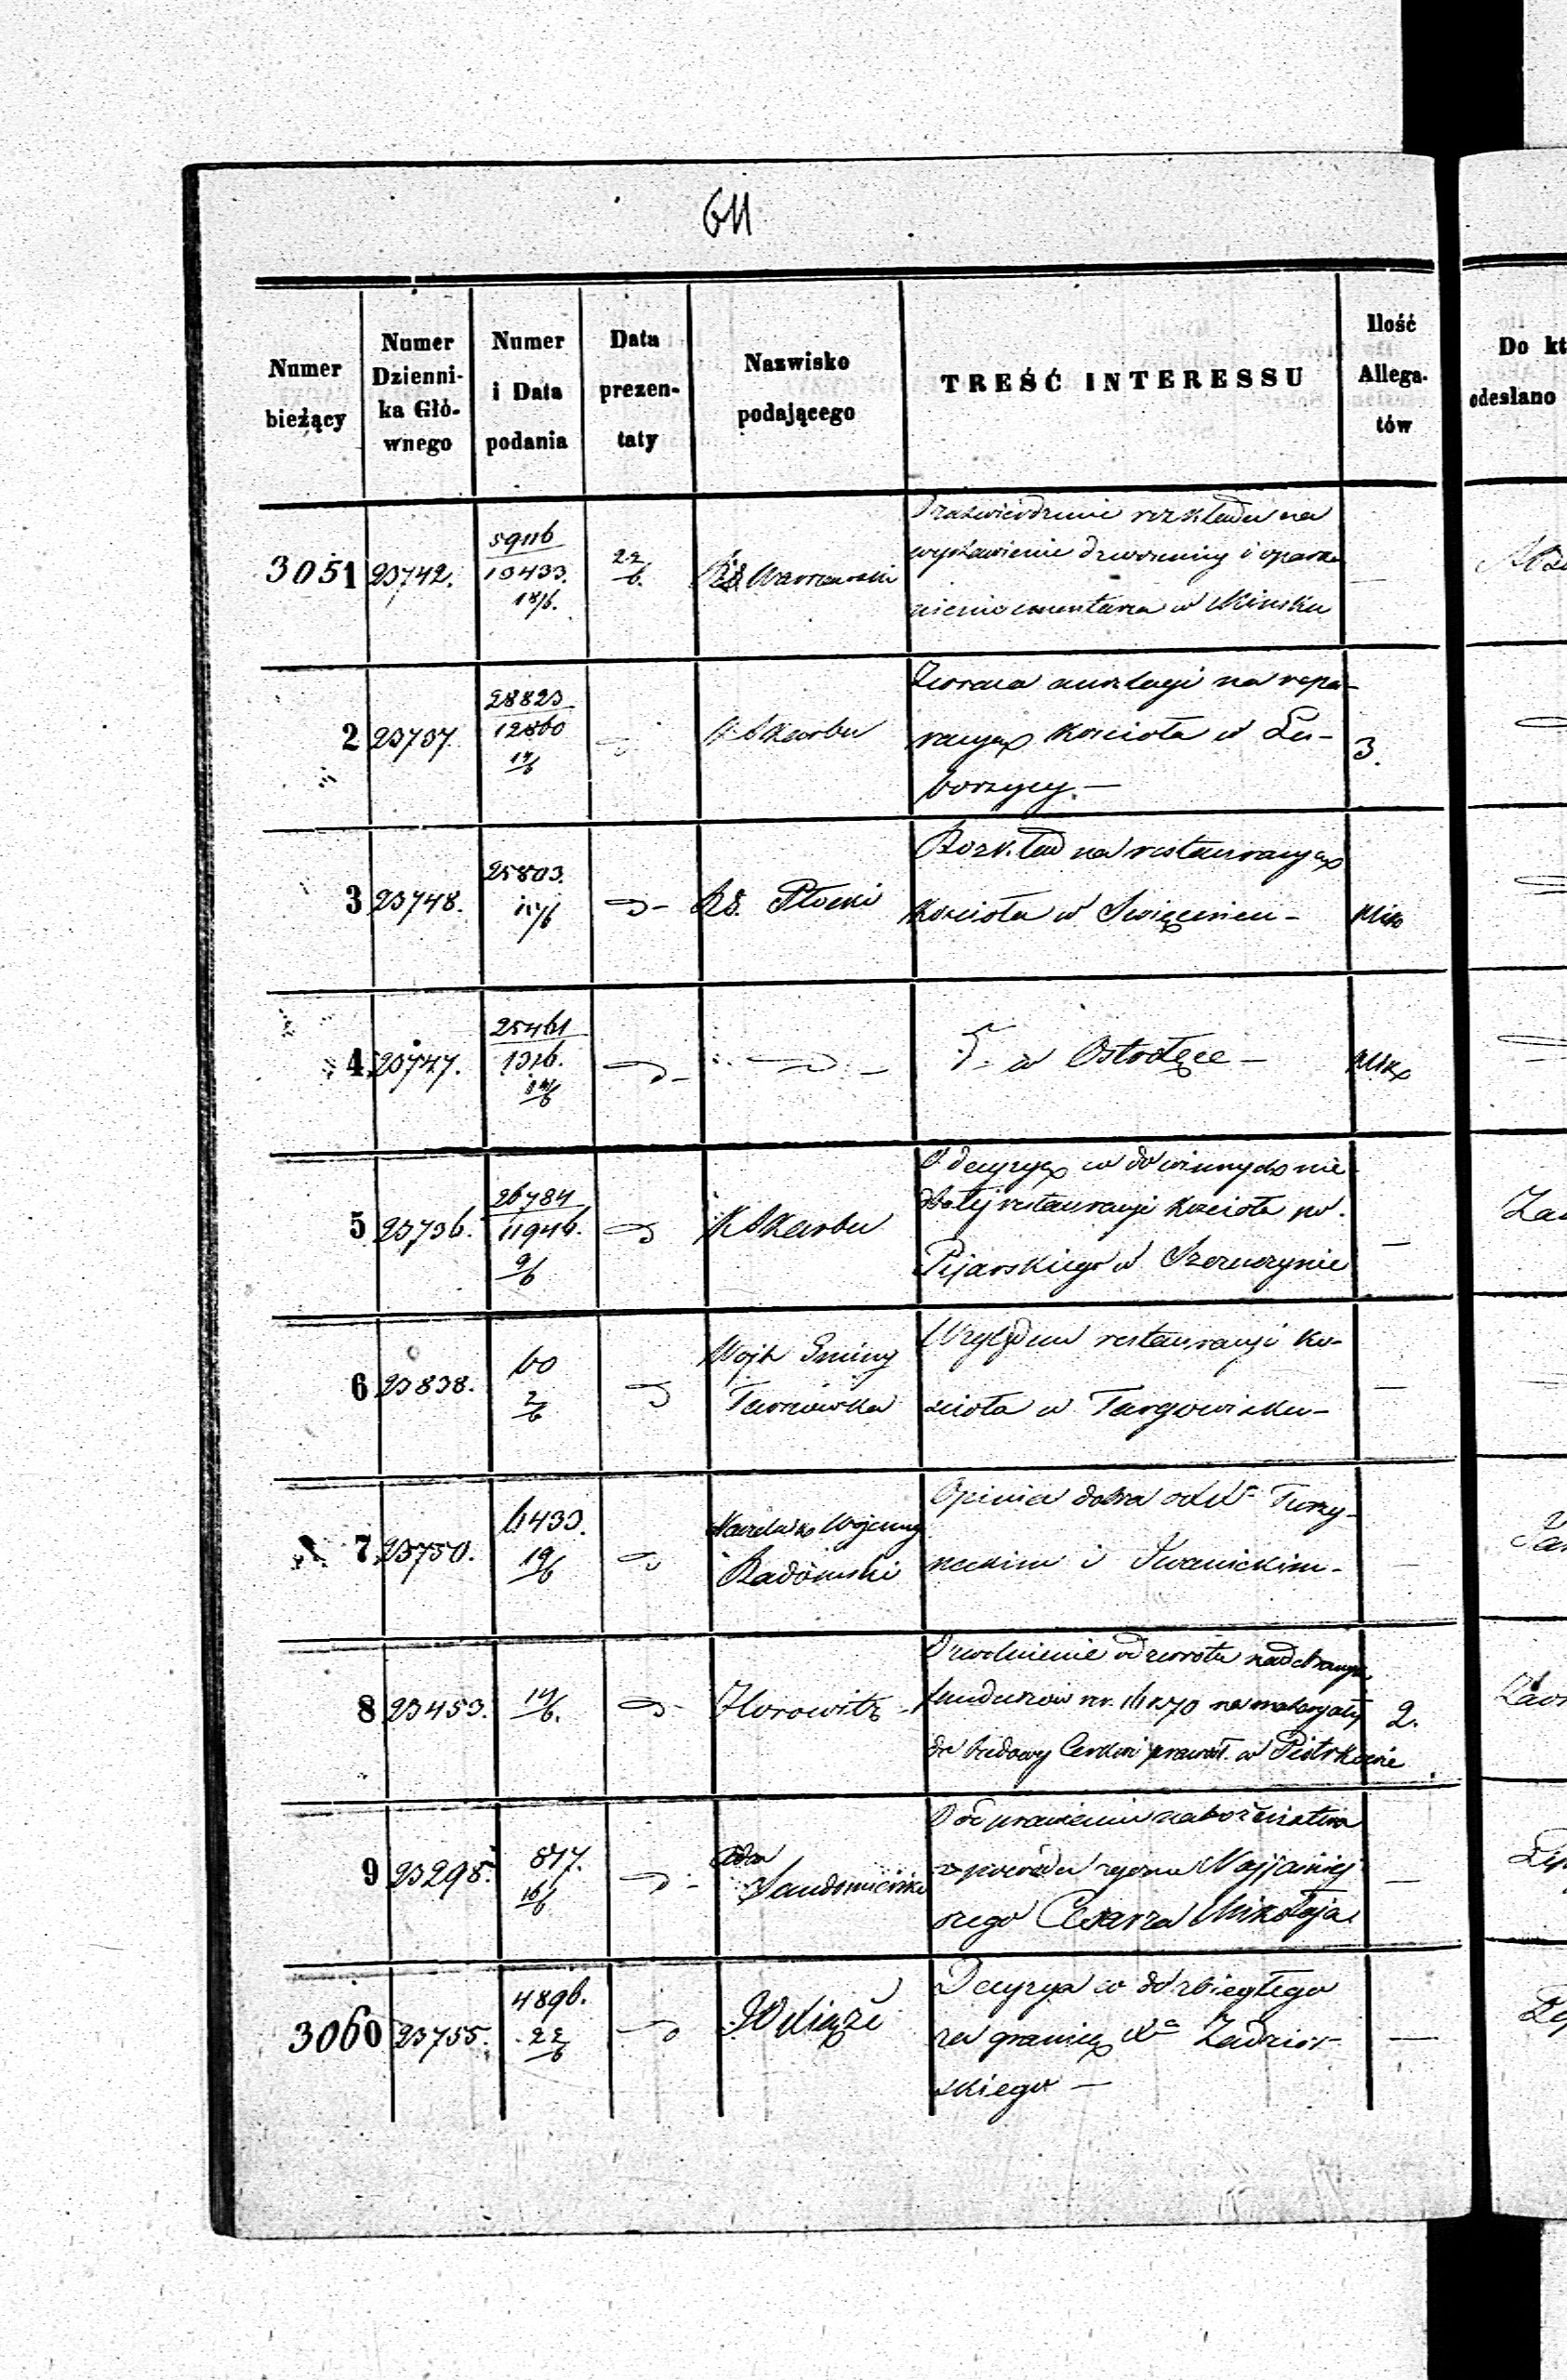 611
Numer bieżący
Numer Dzienni-ka Głó-wnego
Numer i Data podania
Data prezen-taty
Nazwisko podającego
TREŚĆ INTERESSU
Ilość Allega-tów
Do kt
odesłano
3051 23742. 59116 / 10433. 18/6. 22/6. RG Warszawski
O zatwierdzenie rozkładu na
wystawienie dzwonnicy i oparka-
nienie cmentarza w Mińsku —
2 23737. 28823 / 12860 17/6 K Skarbu
Zwraca anszlagi na repa-
racyą kościoła w Lu-
borzycy. — 3.
3 23748. 25803. RG. Płocki
Rozkład na restauracyą
Kościoła w Święcieniu -
4 23747. 25461 / 1316.
w Ostrołęce —
5 23736. 26784 / 11946. 9/6 K Skarbu
O decyzyą w do winnych nie
dbałej restauracyi kościoła po.
Pijarskiego w Szczuczynie —
6 23838. 60 2/6 Wójt Gminy
Tarnówka
Względem restauracyi ko-
ścioła w Targowisku - —
7 23750. 6433. 19/6 Naczelnik Wojenny
Radomski
Opinia dobra o
i Iwanickim - —
8 23453. 14/6. Horowitz
O uwolnienie od zwrotu nadebranych
funduszów rs. 1670 na materyały 2.
do budowy Cerkwi prawosł. w Piotrkowie
9 23298. 817. 16/6
Sandomierska
O odprawieniu nabożeństwa
z powodu zgonu Najjaśniej
szego Cesarza Mikołaja —
3060 23755. 4896. 22/6 JO Xiąże
Decyzya w do zbiegłego
za granicę
skiego — —